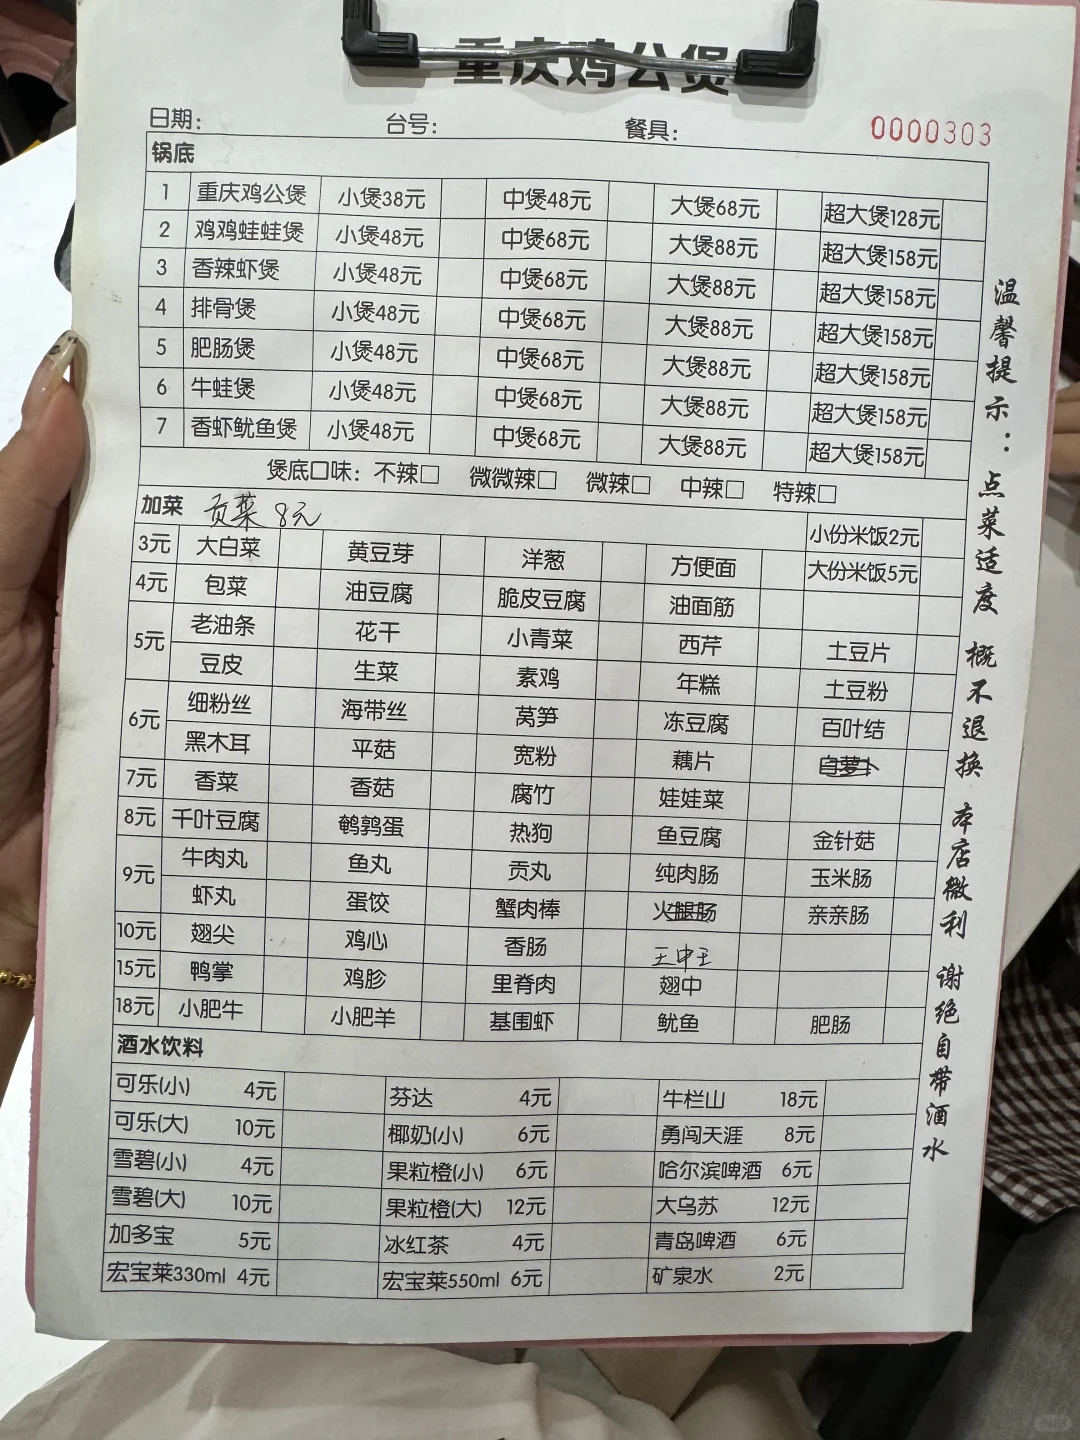 重庆鸡公煲
日期: 台号: 餐具: 0000303
锅底
1 重庆鸡公煲 小煲38元 中煲48元 大煲68元 超大煲128元
2 鸡鸡蛙蛙煲 小煲48元 中煲68元 大煲88元 超大煲158元
3 香辣虾煲 小煲48元 中煲68元 大煲88元 超大煲158元
4 排骨煲 小煲48元 中煲68元 大煲88元 超大煲158元
5 肥肠煲 小煲48元 中煲68元 大煲88元 超大煲158元
6 牛蛙煲 小煲48元 中煲68元 大煲88元 超大煲158元
7 香虾鱿鱼煲 小煲48元 中煲68元 大煲88元 超大煲158元
煲底口味: 不辣□ 微微辣□ 微辣□ 中辣□ 特辣□
加菜 贡菜 8元 小份米饭2元
3元 大白菜 黄豆芽 洋葱 方便面 大份米饭5元
4元 包菜 油豆腐 脆皮豆腐 油面筋
5元 老油条 花干 小青菜 西芹 土豆片
豆皮 生菜 素鸡 年糕 土豆粉
6元 细粉丝 海带丝 莴笋 冻豆腐 百叶结
黑木耳 平菇 宽粉 藕片 白萝卜
7元 香菜 香菇 腐竹 娃娃菜
8元 千叶豆腐 鹌鹑蛋 热狗 鱼豆腐 金针菇
9元 牛肉丸 鱼丸 贡丸 纯肉肠 玉米肠
虾丸 蛋饺 蟹肉棒 火腿肠 亲亲肠
10元 翅尖 鸡心 香肠 王中王
15元 鸭掌 鸡胗 里脊肉 翅中
18元 小肥牛 小肥羊 基围虾 鱿鱼 肥肠
酒水饮料
可乐(小) 4元 芬达 4元 牛栏山 18元
可乐(大) 10元 椰奶(小) 6元 勇闯天涯 8元
雪碧(小) 4元 果粒橙(小) 6元 哈尔滨啤酒 6元
雪碧(大) 10元 果粒橙(大) 12元 大乌苏 12元
加多宝 5元 冰红茶 4元 青岛啤酒 6元
宏宝莱330ml 4元 宏宝莱550ml 6元 矿泉水 2元
温馨提示:点菜适度 概不退换 本店微利 谢绝自带酒水